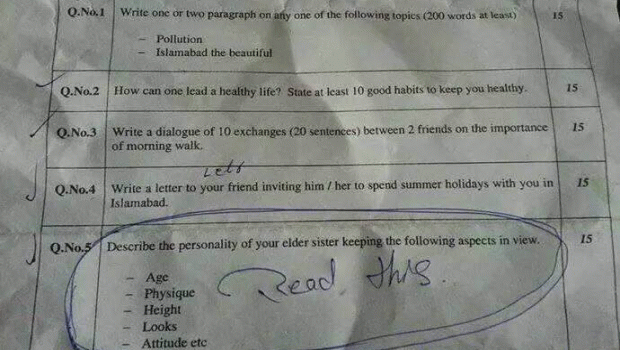 Q.No.1 Write one or two paragraph on any one of the following topics (200 words at least) 15
– Pollution
– Islamabad the beautiful
Q.No.2 How can one lead a healthy life? State at least 10 good habits to keep you healthy. 15
Q.No.3 Write a dialogue of 10 exchanges (20 sentences) between 2 friends on the importance 15
of morning walk.
Lets
Q.No.4 Write a letter to your friend inviting him / her to spend summer holidays with you in 15
Islamabad.
Q.No.5 Describe the personality of your elder sister keeping the following aspects in view. 15
– Age
Read this.
– Physique
– Height
– Looks
– Attitude etc